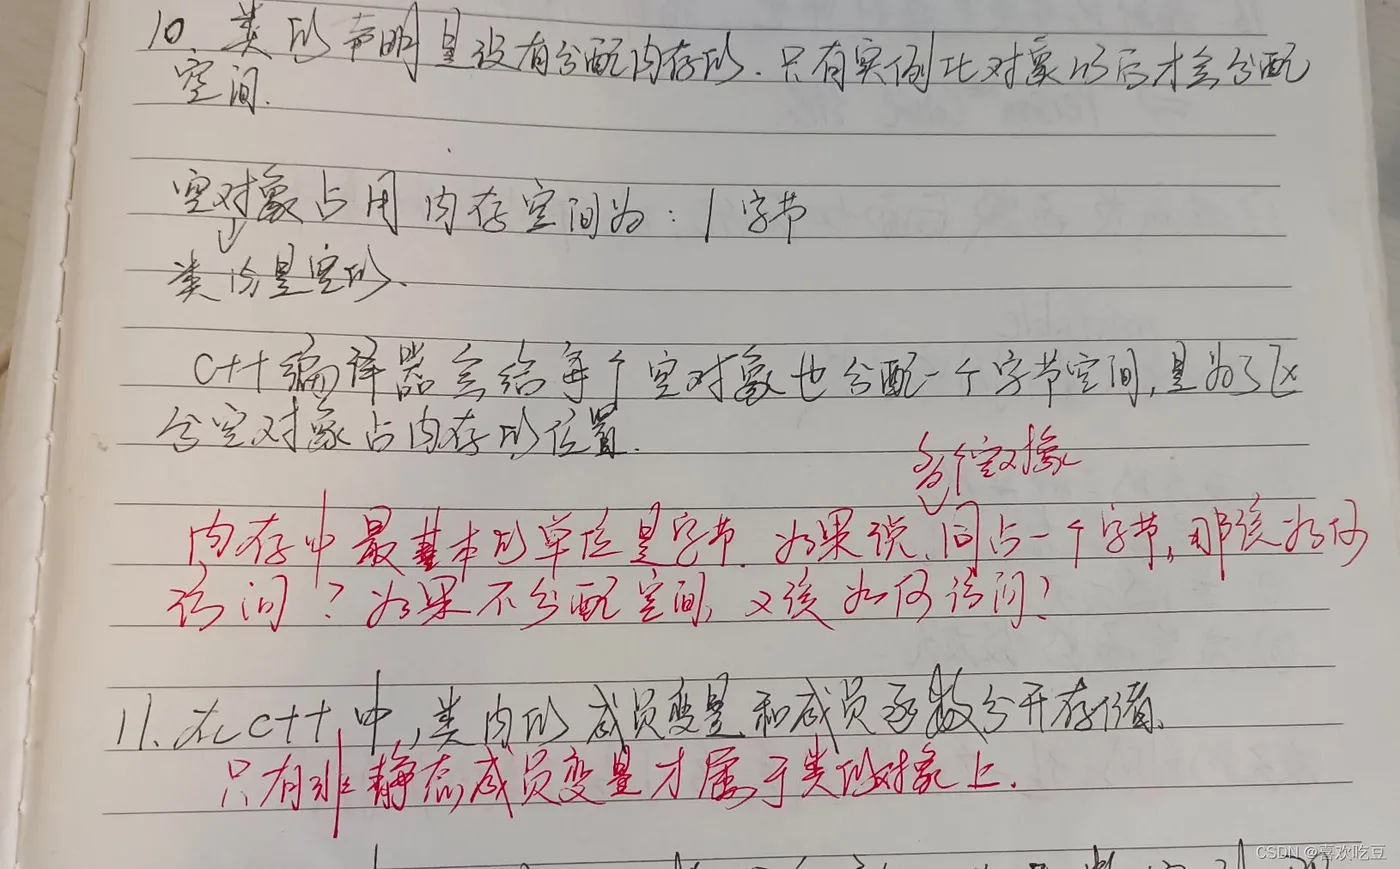 10. 类的声明是没有分配内存的. 只有实例化对象的后才会分配
空间.
空对象占用内存空间为: 1字节
类内是空的.
C++编译器会给每个空对象也分配一个字节空间, 是为了区
分空对象占内存的位置.
多个空对象
内存中最基本的单位是字节. 如果说, 同占一个字节, 那该如何
访问? 如果不分配空间, 又该如何访问?
11. 在C++中, 类内的成员变量和成员函数分开存储.
只有非静态成员变量才属于类的对象上.
CSDN @喜欢吃豆